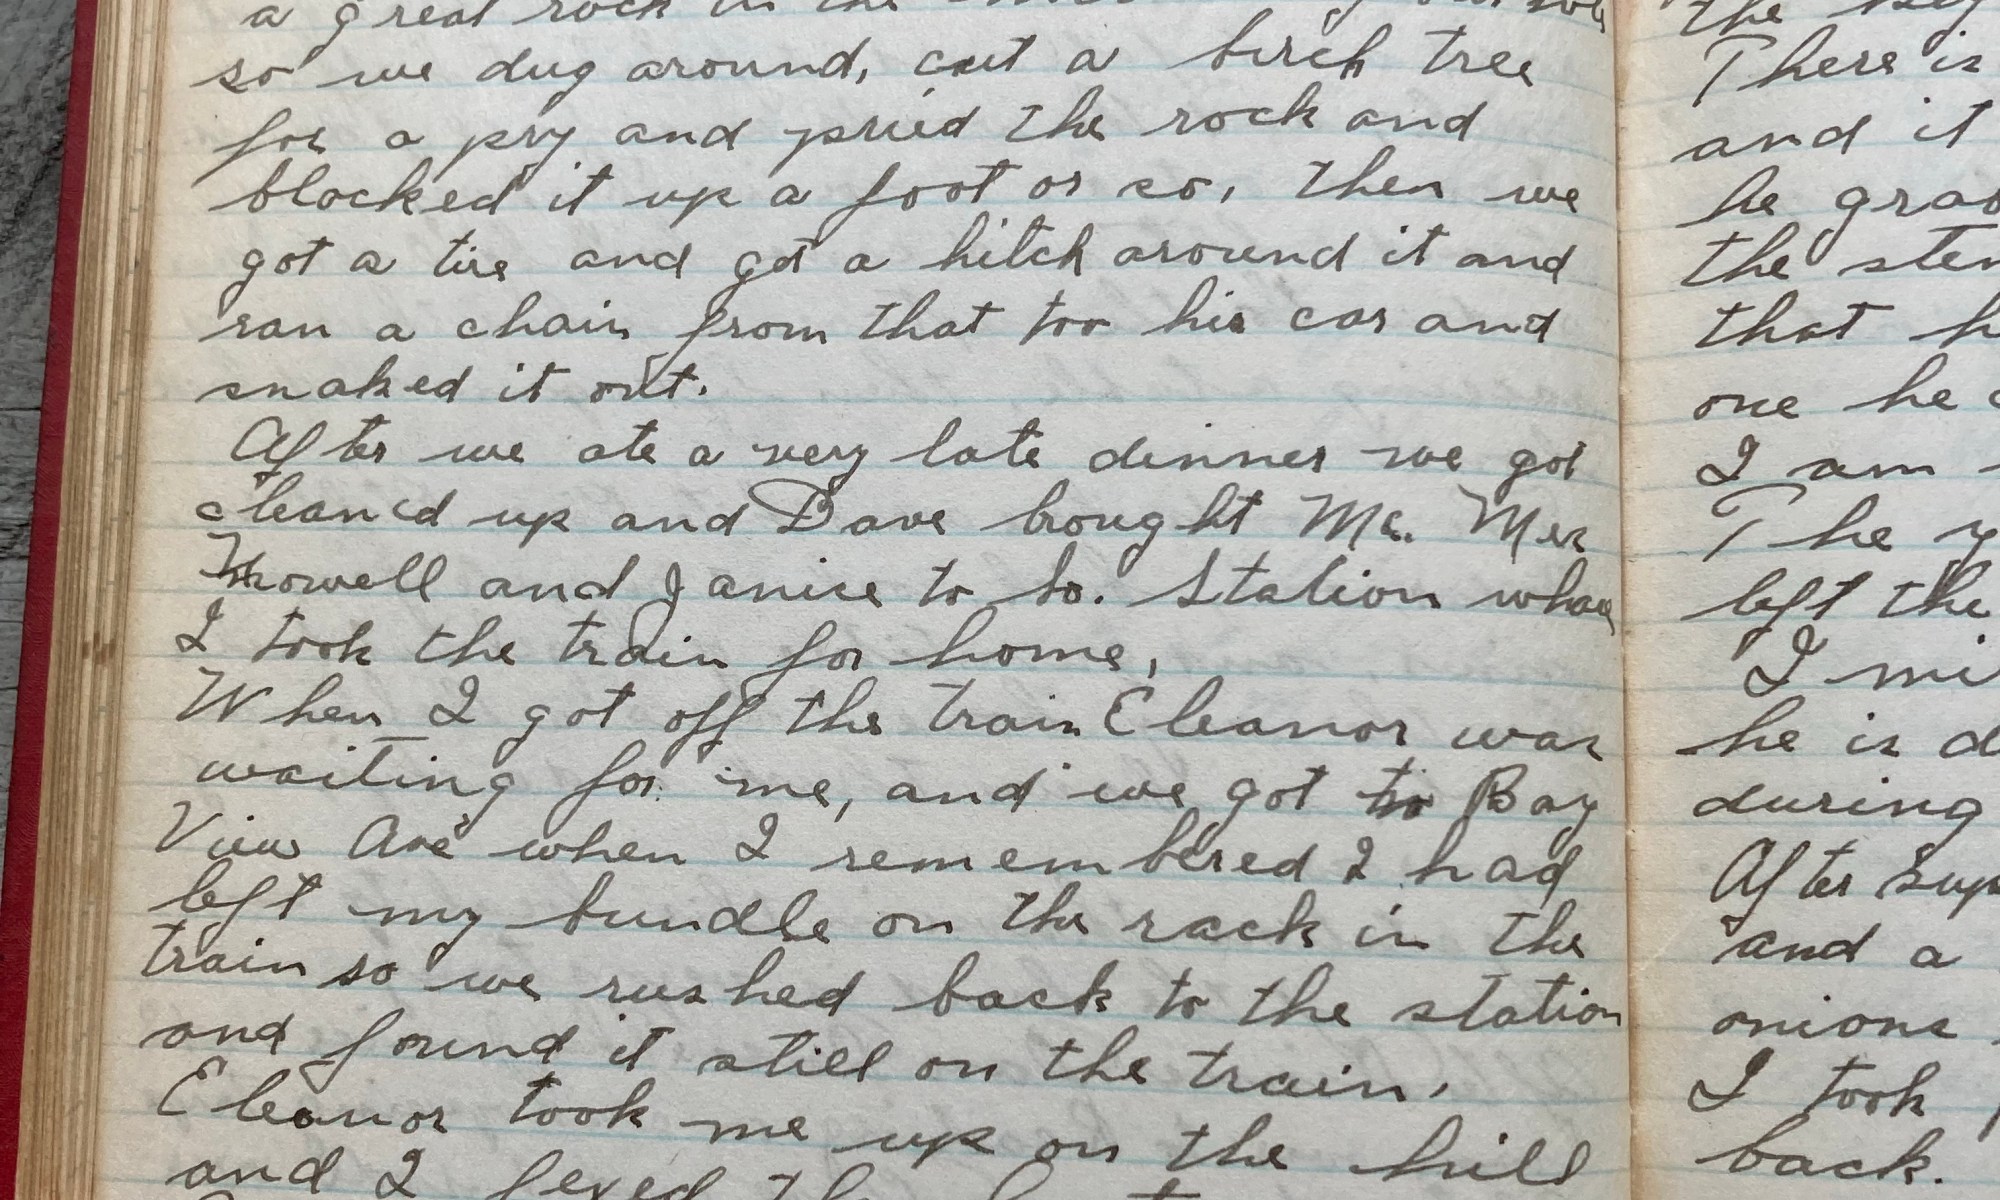 a great rock in the
so we dug around, cut a birch tree
for a pry and pried the rock and
blocked it up a foot or so, then we
got a tire and got a hitch around it and
ran a chain from that too his car and
snaked it out.
After we ate a very late dinner we got
cleaned up and Dave brought Mr. Mrs
Howell and Janice to So. Station whare
I took the train for home,
When I got off the train Eleanor was
waiting for me, and we got to Bay
View Ave when I remembered I had
left my bundle on the rack in the
train so we rushed back to the station
and found it still on the train,
Eleanor took me up on the hill
and I
the
There is
and it
he
the
that
one he
I am
The
left the
I
he is
during
After
and a
onions
I took
back.